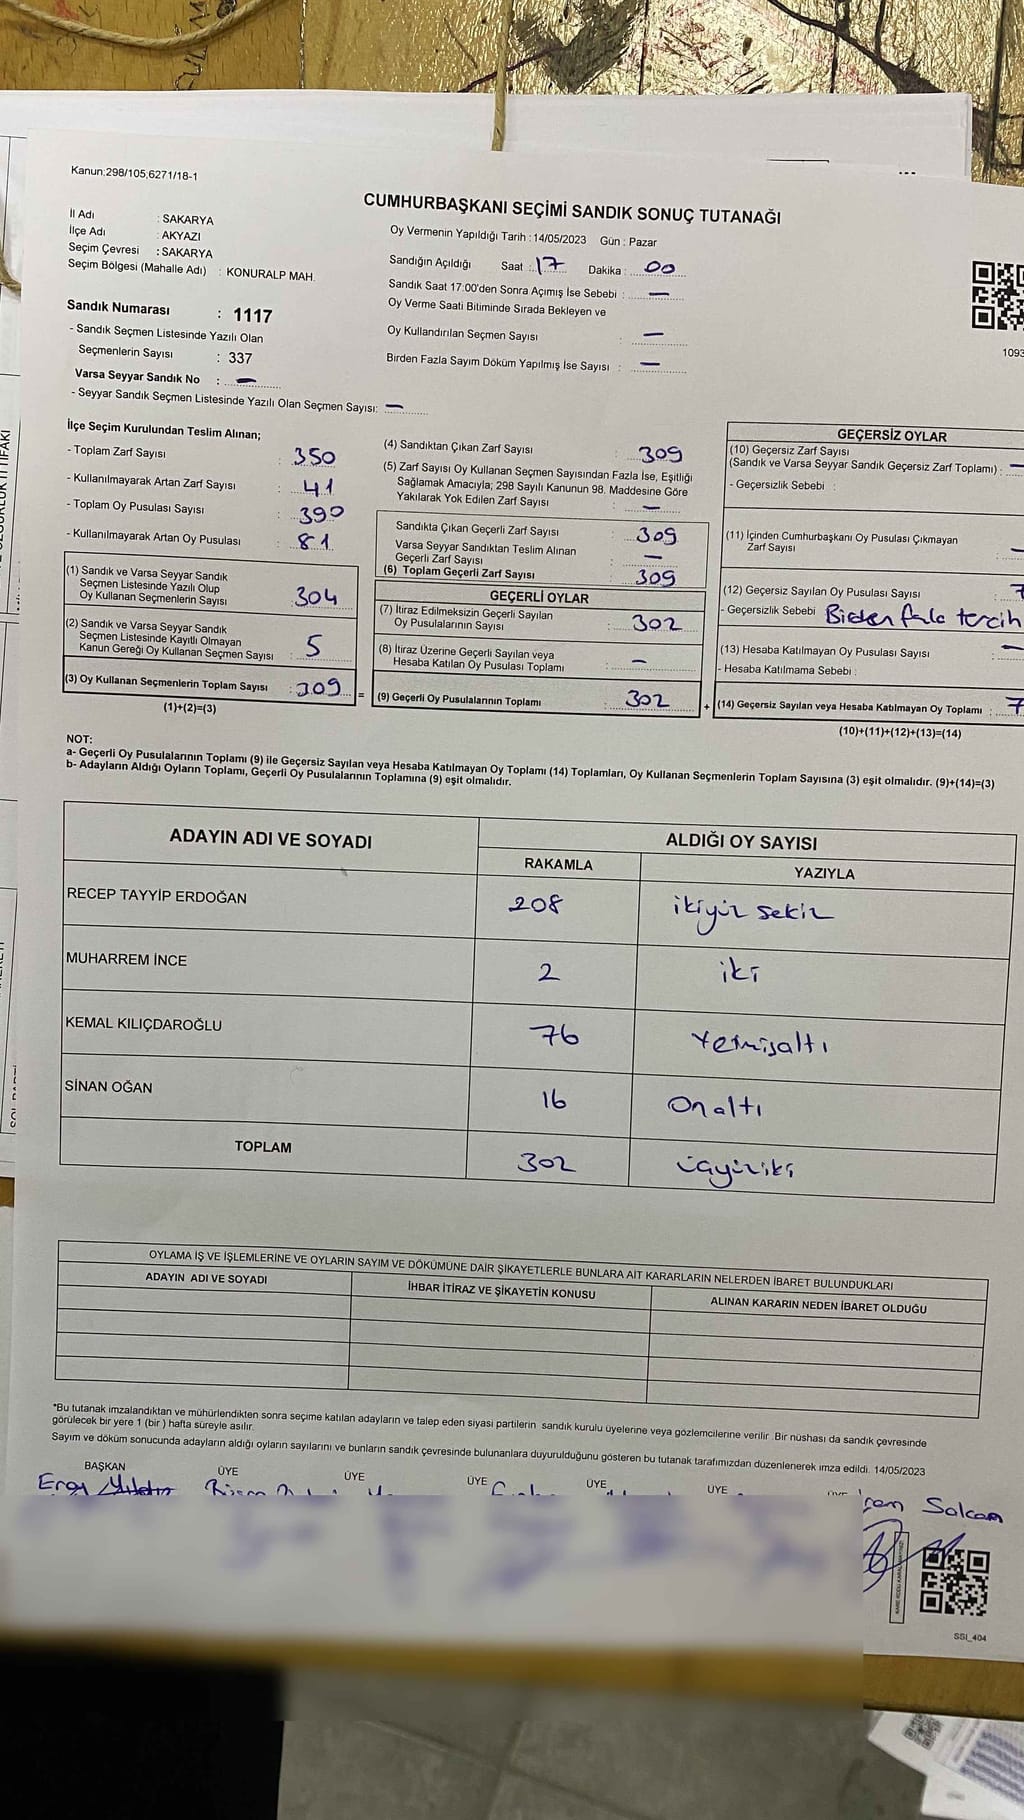 Kanun:298/105,6271/18-1
CUMHURBAŞKANI SEÇİMİ SANDIK SONUÇ TUTANAĞI
İl Adı : SAKARYA
İlçe Adı : AKYAZI
Seçim Çevresi : SAKARYA
Seçim Bölgesi (Mahalle Adı) : KONURALP MAH.
Sandık Numarası : 1117
- Sandık Seçmen Listesinde Yazılı Olan
Seçmenlerin Sayısı : 337
Varsa Seyyar Sandık No : —
- Seyyar Sandık Seçmen Listesinde Yazılı Olan Seçmen Sayısı: —
Oy Vermenin Yapıldığı Tarih : 14/05/2023 Gün : Pazar
Sandığın Açıldığı Saat : 17 Dakika : 00
Sandık Saat 17:00'den Sonra Açımış İse Sebebi : —
Oy Verme Saati Bitiminde Sırada Bekleyen ve
Oy Kullandırılan Seçmen Sayısı : —
Birden Fazla Sayım Döküm Yapılmış İse Sayısı : —
1093
İlçe Seçim Kurulundan Teslim Alınan;
- Toplam Zarf Sayısı : 350
- Kullanılmayarak Artan Zarf Sayısı : 41
- Toplam Oy Pusulası Sayısı : 390
- Kullanılmayarak Artan Oy Pusulası : 81
(1) Sandık ve Varsa Seyyar Sandık
Seçmen Listesinde Yazılı Olup
Oy Kullanan Seçmenlerin Sayısı : 304
(2) Sandık ve Varsa Seyyar Sandık
Seçmen Listesinde Kayıtlı Olmayan
Kanun Gereği Oy Kullanan Seçmen Sayısı : 5
(3) Oy Kullanan Seçmenlerin Toplam Sayısı : 309
(1)+(2)=(3)
=
(4) Sandıktan Çıkan Zarf Sayısı : 309
(5) Zarf Sayısı Oy Kullanan Seçmen Sayısından Fazla İse, Eşitliği
Sağlamak Amacıyla; 298 Sayılı Kanunun 98. Maddesine Göre
Yakılarak Yok Edilen Zarf Sayısı : —
Sandıkta Çıkan Geçerli Zarf Sayısı : 309
Varsa Seyyar Sandıktan Teslim Alınan
Geçerli Zarf Sayısı : —
(6) Toplam Geçerli Zarf Sayısı : 309
GEÇERLİ OYLAR
(7) İtiraz Edilmeksizin Geçerli Sayılan
Oy Pusulalarının Sayısı : 302
(8) İtiraz Üzerine Geçerli Sayılan veya
Hesaba Katılan Oy Pusulası Toplamı : —
(9) Geçerli Oy Pusulalarının Toplamı : 302
+
GEÇERSİZ OYLAR
(10) Geçersiz Zarf Sayısı
(Sandık ve Varsa Seyyar Sandık Geçersiz Zarf Toplamı) : —
- Geçersizlik Sebebi :
(11) İçinden Cumhurbaşkanı Oy Pusulası Çıkmayan
Zarf Sayısı : —
(12) Geçersiz Sayılan Oy Pusulası Sayısı : 7
- Geçersizlik Sebebi Birden fazla tercih
(13) Hesaba Katılmayan Oy Pusulası Sayısı : —
- Hesaba Katılmama Sebebi :
(14) Geçersiz Sayılan veya Hesaba Katılmayan Oy Toplamı : 7
(10)+(11)+(12)+(13)=(14)
NOT:
a- Geçerli Oy Pusulalarının Toplamı (9) ile Geçersiz Sayılan veya Hesaba Katılmayan Oy Toplamı (14) Toplamları, Oy Kullanan Seçmenlerin Toplam Sayısına (3) eşit olmalıdır. (9)+(14)=(3)
b- Adayların Aldığı Oyların Toplamı, Geçerli Oy Pusulalarının Toplamına (9) eşit olmalıdır.
ADAYIN ADI VE SOYADI ALDIĞI OY SAYISI
RAKAMLA YAZIYLA
RECEP TAYYİP ERDOĞAN 208 ikiyüz sekiz
MUHARREM İNCE 2 iki
KEMAL KILIÇDAROĞLU 76 Yetmişaltı
SİNAN OĞAN 16 Onaltı
TOPLAM 302 üçyüziki
OYLAMA İŞ VE İŞLEMLERİNE VE OYLARIN SAYIM VE DÖKÜMÜNE DAİR ŞİKAYETLERLE BUNLARA AİT KARARLARIN NELERDEN İBARET BULUNDUKLARI
ADAYIN ADI VE SOYADI İHBAR İTİRAZ VE ŞİKAYETİN KONUSU ALINAN KARARIN NEDEN İBARET OLDUĞU
*Bu tutanak imzalandıktan ve mühürlendikten sonra seçime katılan adayların ve talep eden siyasi partilerin sandık kurulu üyelerine veya gözlemcilerine verilir. Bir nüshası da sandık çevresinde
görülecek bir yere 1 (bir ) hafta süreyle asılır.
Sayım ve döküm sonucunda adayların aldığı oyların sayılarını ve bunların sandık çevresinde bulunanlara duyurulduğunu gösteren bu tutanak tarafımızdan düzenlenerek imza edildi. 14/05/2023
BAŞKAN ÜYE ÜYE ÜYE ÜYE ÜYE
SSI_404